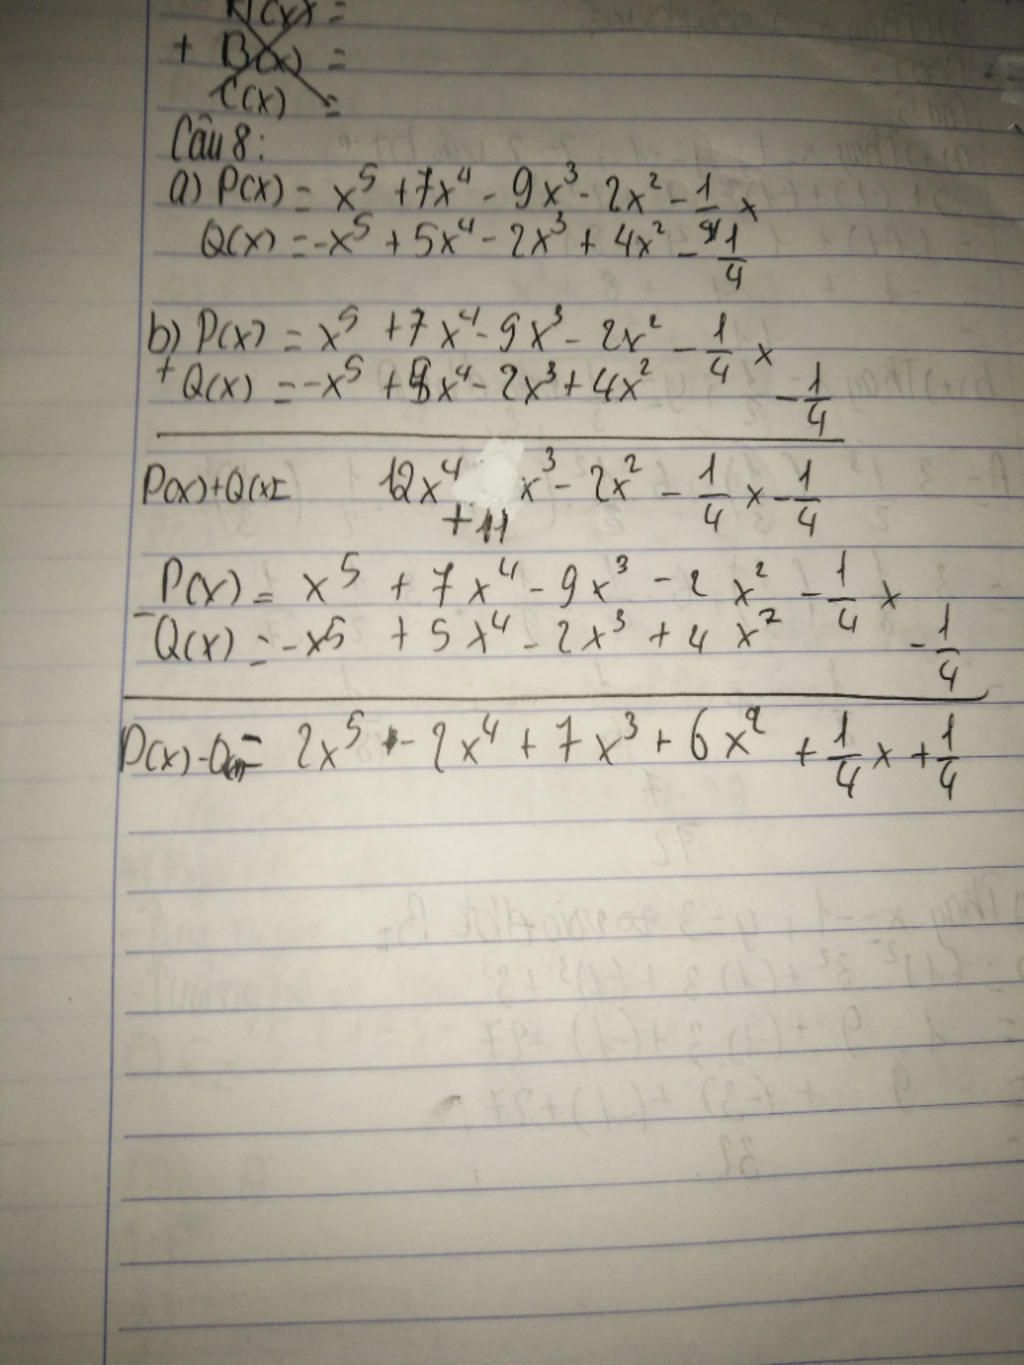 + B(x) =
C(x) =
Câu 8:
a) P(x) = x⁵ + 7x⁴ - 9x³ - 2x² - 1/4 x
Q(x) = -x⁵ + 5x⁴ - 2x³ + 4x² - 1/4
b) P(x) = x⁵ + 7x⁴ - 9x³ - 2x² - 1/4 x
+ Q(x) = -x⁵ + 5x⁴ - 2x³ + 4x² - 1/4
P(x)+Q(x)= 12x⁴ + 11 x³ - 2x² - 1/4 x - 1/4
P(x) = x⁵ + 7x⁴ - 9x³ - 2x² - 1/4 x
- Q(x) = -x⁵ + 5x⁴ - 2x³ + 4x² - 1/4
P(x)-Q(x)= 2x⁵ - 2x⁴ + 7x³ + 6x² + 1/4 x + 1/4